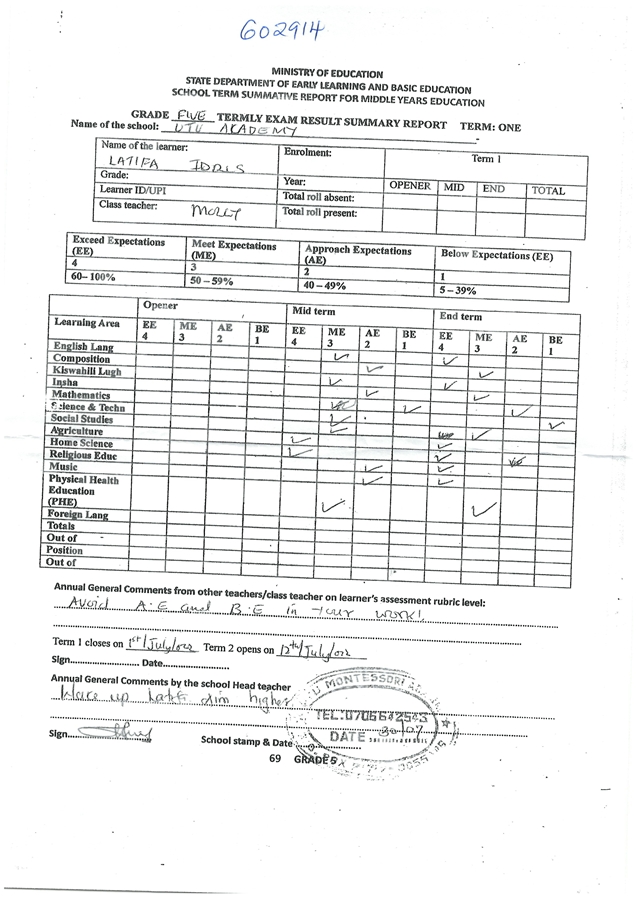 602914
MINISTRY OF EDUCATION
STATE DEPARTMENT OF EARLY LEARNING AND BASIC EDUCATION
SCHOOL TERM SUMMATIVE REPORT FOR MIDDLE YEARS EDUCATION
GRADE FIVE TERMLY EXAM RESULT SUMMARY REPORT TERM: ONE
Name of the school: UTU ACADEMY
Name of the learner: Enrolment: Term 1
LATIFA IDRIS
Grade: Year: OPENER MID END TOTAL
Learner ID/UPI Total roll absent:
Class teacher: MOLLY Total roll present:
Exceed Expectations (EE) Meet Expectations (ME) Approach Expectations (AE) Below Expectations (EE)
4 3 2 1
60–100% 50–59% 40–49% 5–39%
Learning Area Opener Mid term End term
EE 4 ME 3 AE 2 BE 1 EE 4 ME 3 AE 2 BE 1 EE 4 ME 3 AE 2 BE 1
English Lang
Composition ✓ ✓
Kiswahili Lugh ✓ ✓
Insha ✓ ✓
Mathematics ✓ ✓
Science & Techn ✓ ✓
Social Studies ✓ ✓
Agriculture ✓ ✓
Home Science ✓ ✓
Religious Educ ✓ ✓
Music ✓ ✓
Physical Health ✓ ✓
Education
(PHE) ✓ ✓
Foreign Lang
Totals
Out of
Position
Out of
Annual General Comments from other teachers/class teacher on learner's assessment rubric level:
Avoid A.E and B.E in your work!
Term 1 closes on 1st/July/022 Term 2 opens on 12th/July/022
Sign Date
Annual General Comments by the school Head teacher
Wake up aim higher
Sign
School stamp & Date
MONTESSORI
TEL:0706642543
DATE 30/07
69 GRADE 5